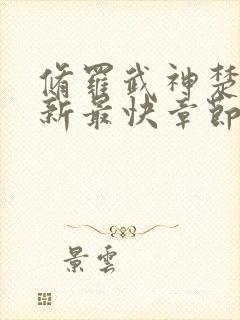 脩羅武神楚
新最快章節
景雲